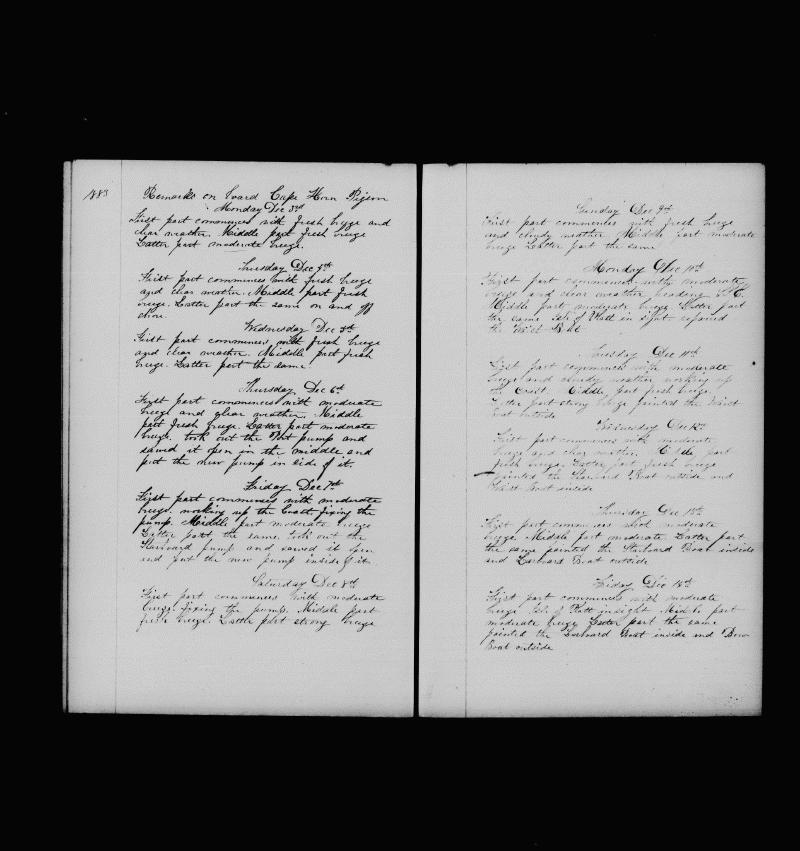 1883
Remarks on board Cape Horn Pigeon
Monday Dec 3rd
First part commences with fresh breeze and
clear weather. Middle part fresh breeze
Latter part moderate breeze.
Tuesday Dec 4th
First part commences with fresh breeze
and clear weather. Middle part fresh
breeze. Latter part the same on and off
shore.
Wednesday Dec 5th
First part commences with fresh breeze
and clear weather. Middle part fresh
breeze. Latter part the same.
Thursday Dec 6th
First part commences with moderate
breeze and clear weather. Middle
part fresh breeze. Latter part moderate
breeze. took out the Port pump and
sawed it open in the middle and
put the new pump in side of it.
Friday Dec 7th
First part commences with moderate
breeze. working up the Coast. fixing the
pump. Middle part moderate breeze
Latter part the same. took out the
Starboard pump and sawed it open
and put the new pump inside of it.
Saturday Dec 8th
First part commences with moderate
breeze. fixing the pump. Middle part
fresh breeze. Latter part strong breeze
Sunday Dec 9th
First part commences with fresh breeze
and cloudy weather Middle part moderate
breeze Latter part the same
Monday Dec 10th
First part commences with moderate
breeze and clear weather heading
Middle part moderate breeze Latter part
the same Isle of Platt in sight repaired
the Waist Boat
Tuesday Dec 11th
First part commences with moderate
breeze and cloudy weather working up
the Coast. Middle part fresh breeze
Latter part strong breeze painted the Waist
Boat outside
Wednesday Dec 12th
First part commences with moderate
breeze and clear weather. Middle part
fresh breeze. Latter part fresh breeze
painted the Starboard Boat outside and
Waist Boat inside
Thursday Dec 13th
First part commences with moderate
breeze Middle part moderate Latter part
the same painted the Starboard Boat inside
and Larboard Boat outside
Friday Dec 14th
First part commences with moderate
breeze Isle of Platt insight Middle part
moderate breeze Latter part the same
painted the Larboard Boat inside and Bow
Boat outside